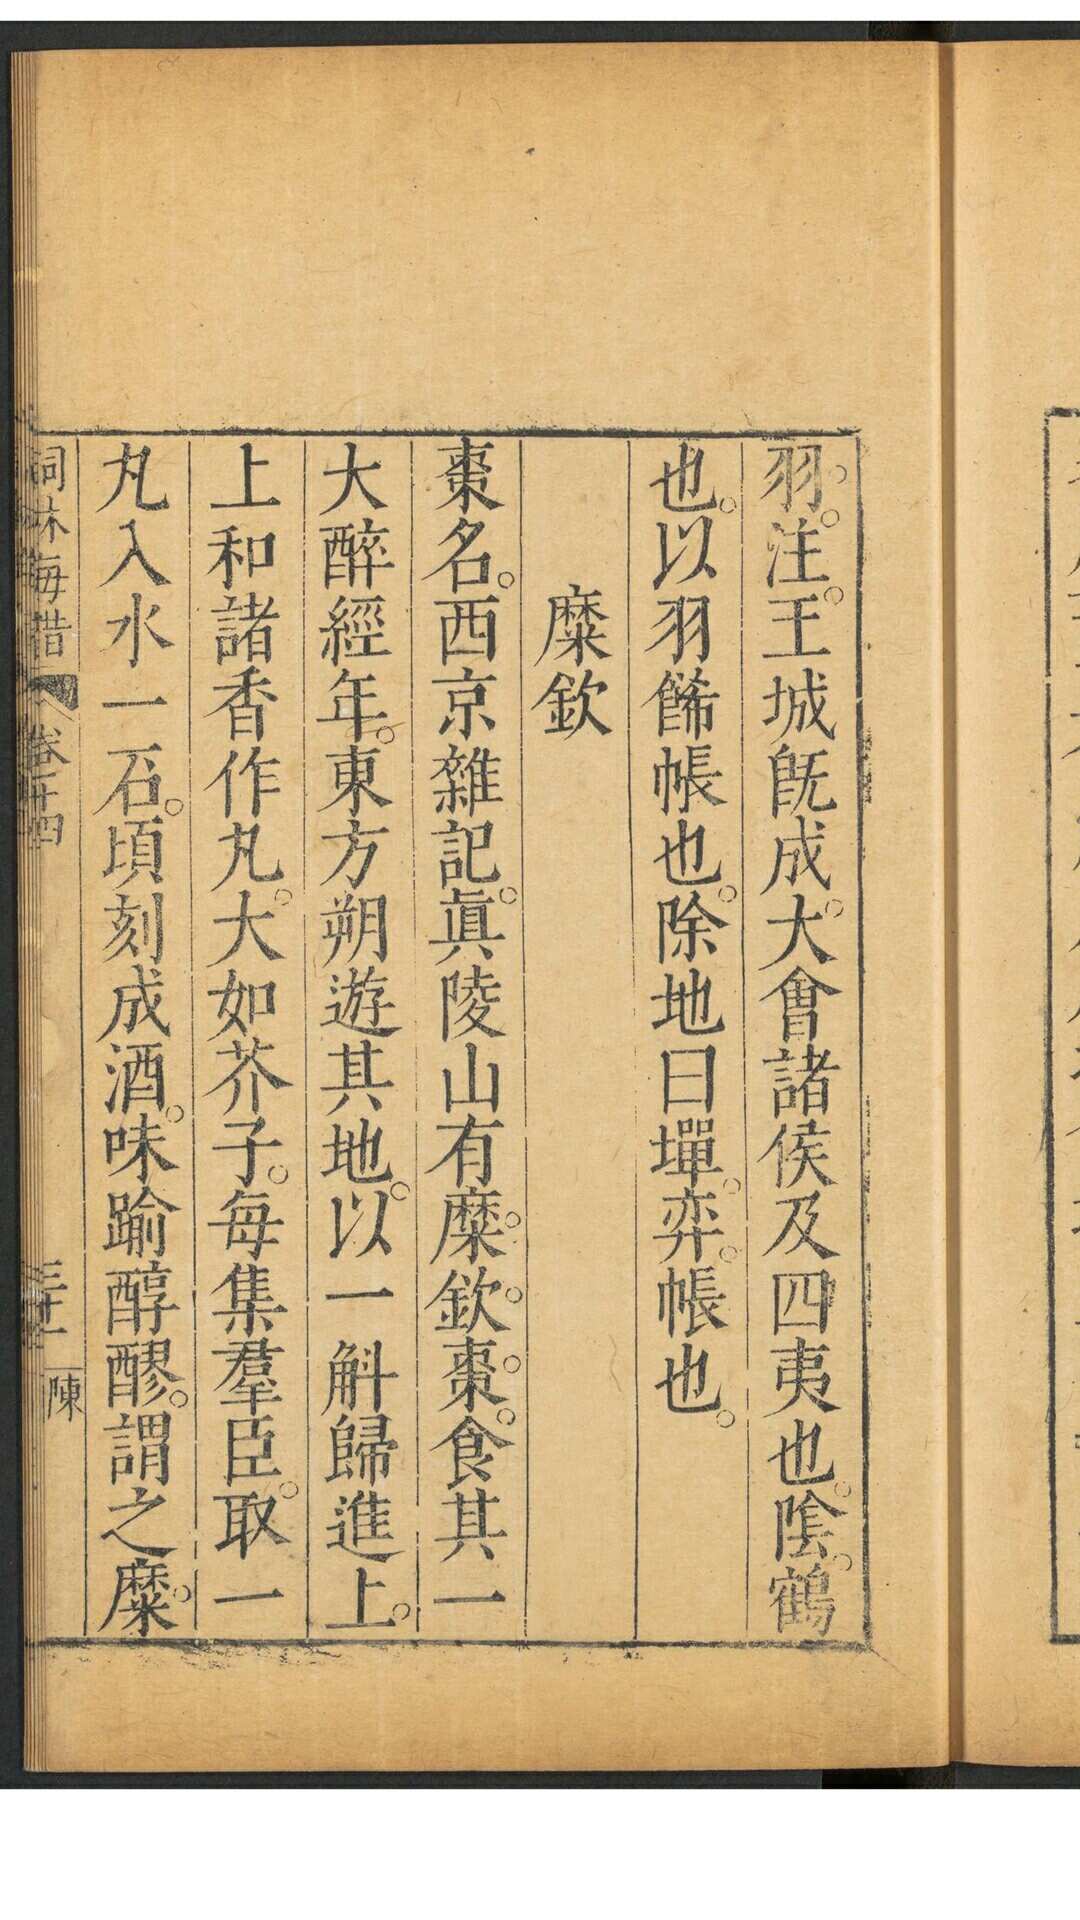 羽。注。王城旣成。大會諸侯及四夷也。陰。鶴
也。以羽餙帳也。除地曰墠。弈。帳也。
糜欽
棗名。西京雜記。眞陵山有糜。欽。棗。食其一
大醉經年。東方朔遊其地。以一斛歸進上。
上和諸香作丸。大如芥子。每集羣臣。取一
丸入水一石。頃刻成酒。味踰醇醪。謂之糜。
詞林海錯 卷十四 三十一 陳